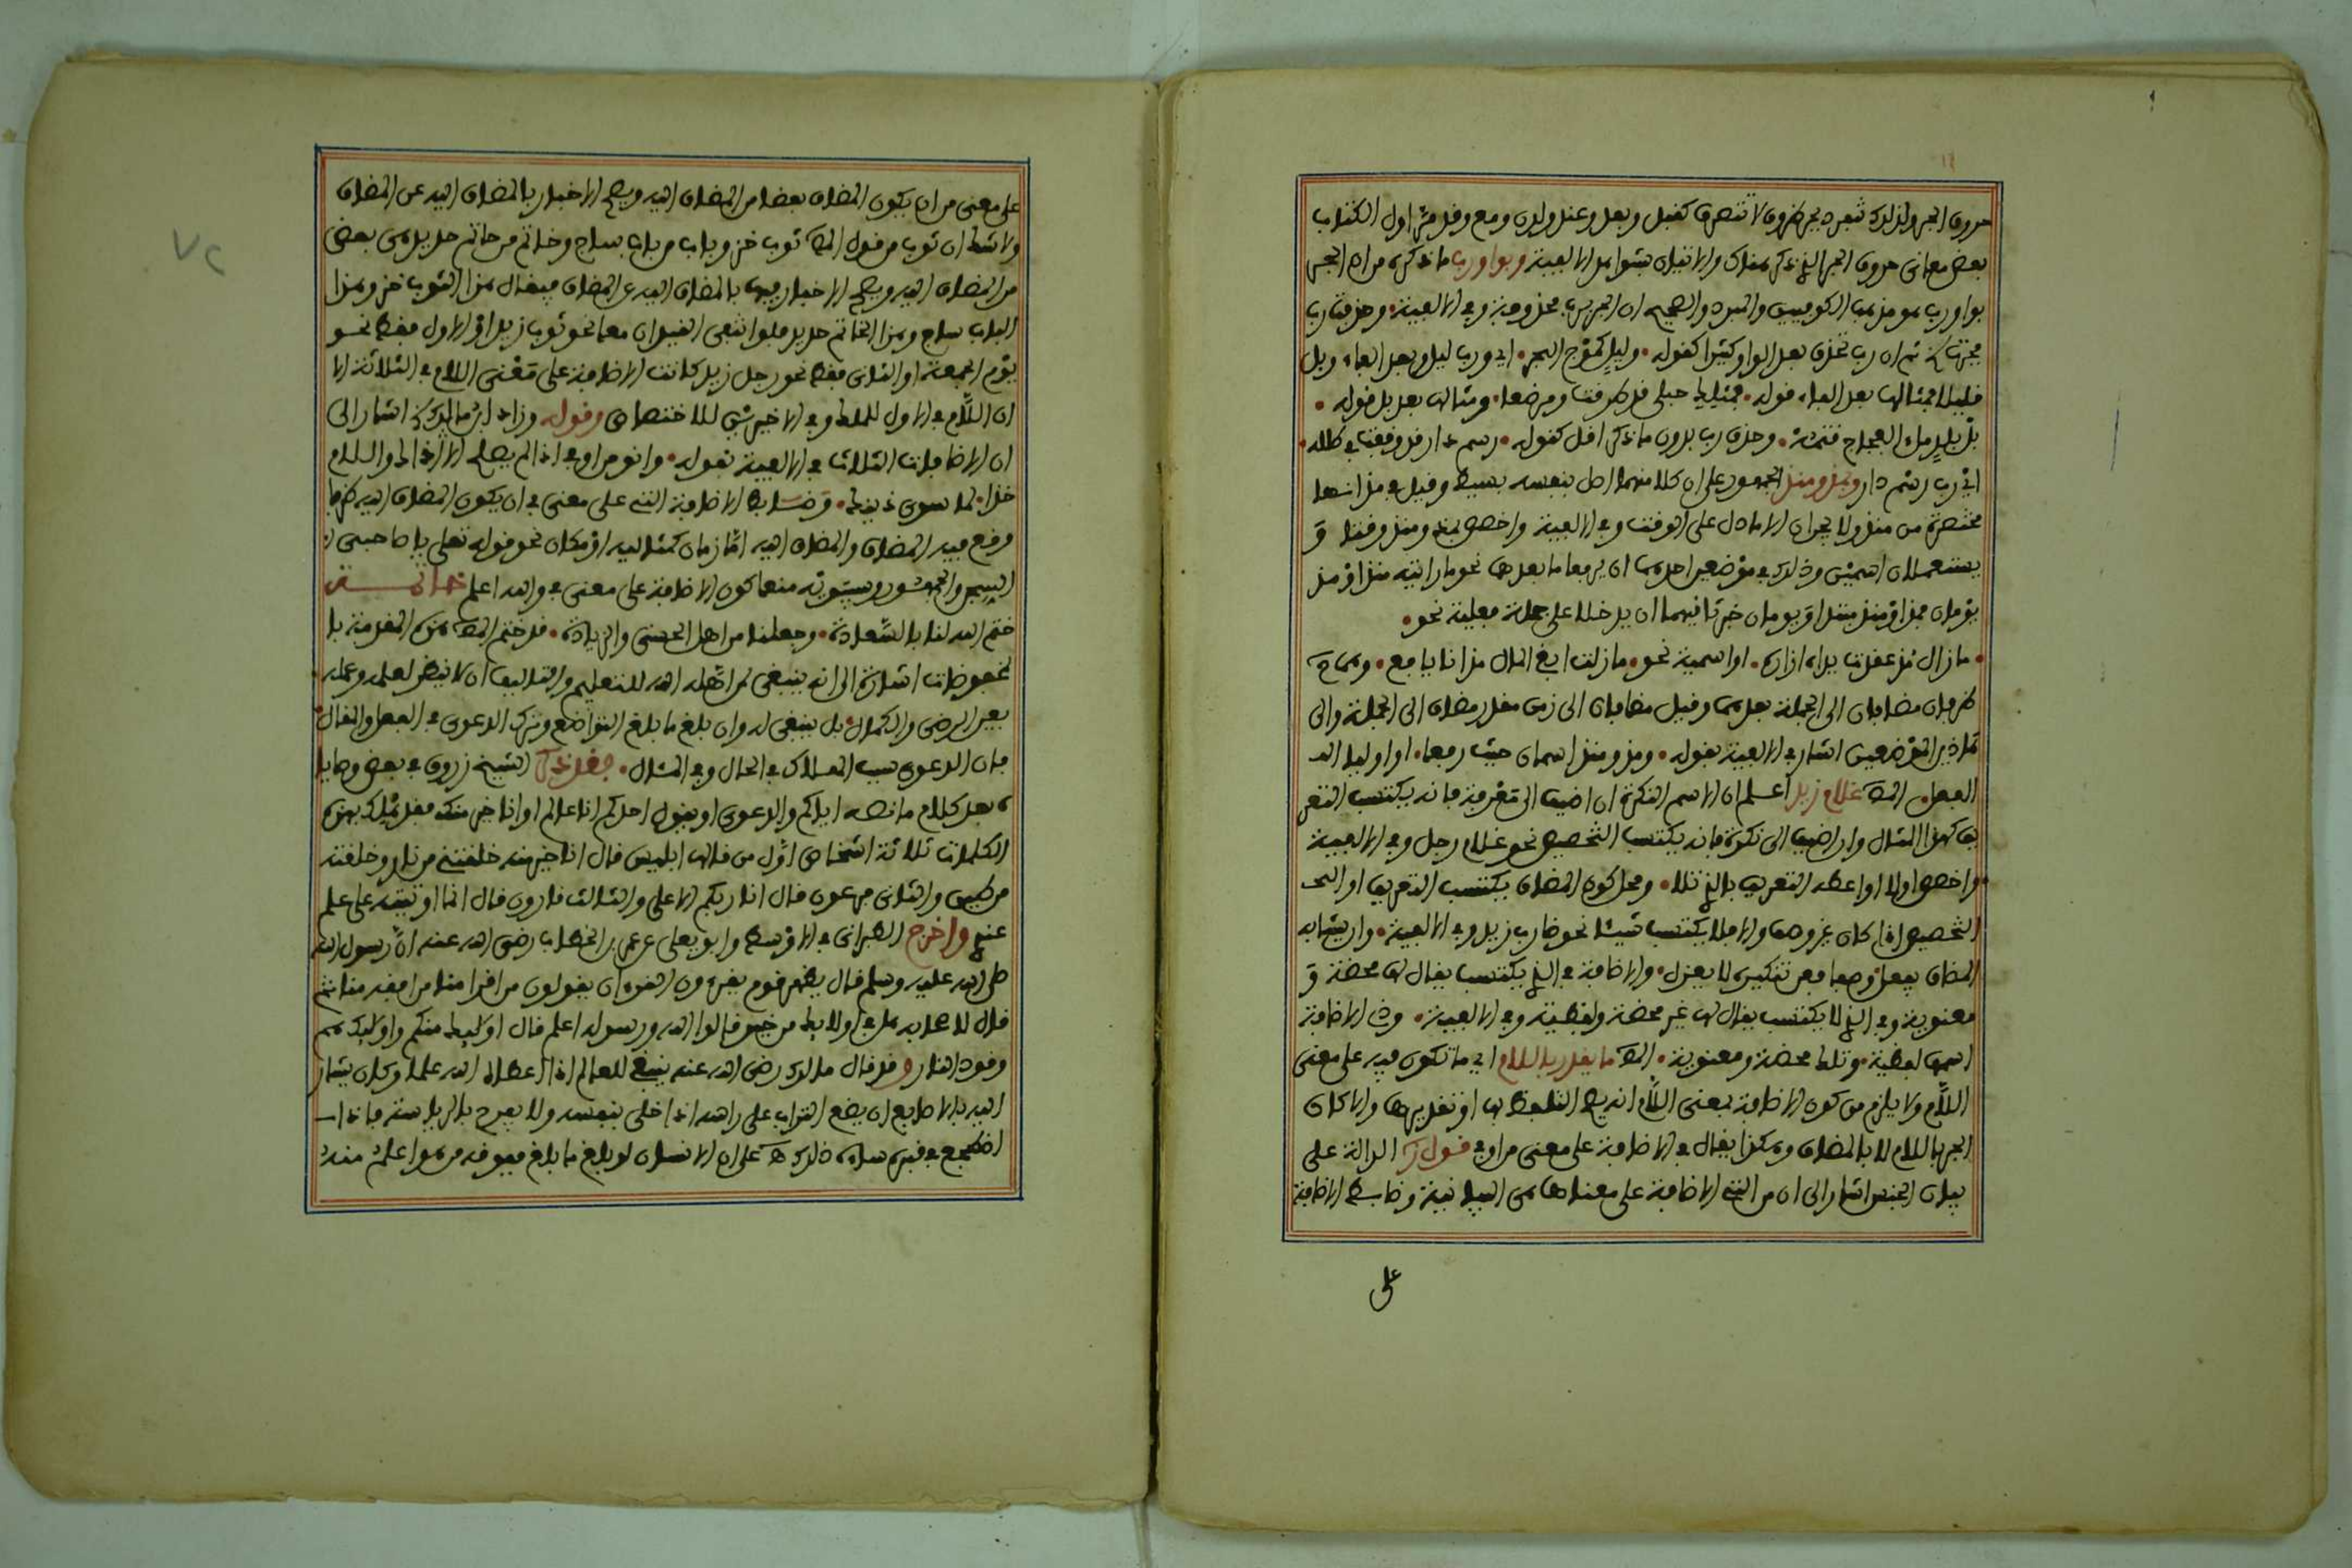 حروف الجر ولذلك تنفرد بجر ظروف لا تتصرف كقبل وبعد وعند ولدن ومع وقد مر اول الكتاب
بعض معاني حروف الجر الذي ذكر هناك والاتيان بشواهد الالفية وبواو رب ما ذكره من ان الجر
بواو رب هو مذهب الكوفيين والمبرد والصحيح ان الجر برب محذوفة وفي الالفية وحذفت رب
فجرت ثم ان رب تحذف بعد الواو كثيرا كقوله وليل كموج البحر اي ورب ليل وبعد الفاء وبل
قليلا فمثالها بعد الفاء قوله فمثلك حبلى قد طرقت ومرضعا ومثالها بعد بل قوله
بل بلد ملء الفجاج قتمه وحذف رب بدون ما ذكر اقل كقوله رسم دار وقفت في طلله
اي رب رسم دار وبمذ ومنذ الجمهور على ان كلا منهما اصل بنفسه بسيط وقيل في مذ انها
مختصرة من منذ ولا يجران الا ما دل على الوقت وفي الالفية واخصص بمذ ومنذ وقتا و
يستعملان اسمين وذلك في موضعين احدهما ان يرفعا ما بعدهما نحو ما رايته منذ او مذ
يومان فمذ او منذ مبتدا ويومان خبر ثانيهما ان يدخلا على جملة فعلية نحو
ما زال مذ عقدت يداه ازاره او اسمية نحو ما زلت ابغي المال مذ انا يافع وهما ح
ظرفان مضافان الى الجملة بعدهما وقيل مضافان الى زمن مقدر مضاف الى الجملة والى
هذين الموضعين اشار في الالفية بقوله ومذ ومنذ اسمان حيث رفعا او اوليا الـ
الفعل المص غلام زيد اعلم ان الاسم النكرة ان اضيف الى معرفة فانه يكتسب التعر
يف كهذا المثال وان اضيف الى نكرة فانه يكتسب التخصيص نحو غلام رجل وفي الالفية
واخصص اولا او اعطه التعريف بالذي تلا ومحل كون المضاف يكتسب التعريف او الـ
التخصيص اذا كان غير وصف والا فلا يكتسب شيئا نحو ضارب زيد وفي الالفية وان يشابه
المضاف يفعل وصفا فعن تنكيره لا يعزل والاضافة في الذي يكتسب يقال لها محضة و
معنوية وفي الذي لا يكتسب يقال لها غير محضة ولفظية وفي الالفية وذي الاضافة
اسمها لفظية وتلك محضة ومعنوية المص ما يقدر باللام اي ما تكون فيه على معنى
اللام ولا يلزم من كون الاضافة بمعنى اللام انه يصح التلفظ بها او تقديرها والا كان
الجر باللام لا بالمضاف وهكذا يقال في الاضافة على معنى من او في قوله الدالة على
بيان الجنس اشار الى ان من التي الاضافة على معناها هي البيانية وضابط الاضافة
على
على معنى من ان يكون المضاف بعضا من المضاف اليه ويصح الاخبار بالمضاف اليه عن المضاف
ولا شك ان ثوب من قول المص ثوب خز وباب من باب ساج وخاتم من خاتم حديد هي بعض
من المضاف اليه ويصح الاخبار فيها بالمضاف اليه عن المضاف فيقال هذا الثوب خز وهذا
الباب ساج وهذا الخاتم حديد فلو انتفى القيدان معا نحو ثوب زيد او الاول فقط نحو
يوم الجمعة او الثاني فقط نحو رجل زيد كانت الاضافة على معنى اللام في الثلاثة الا
ان اللام في الاول للملك وفي الاخيرين للاختصاص وقوله وزاد ابن مالك اشار الى
ان الاضافات الثلاث في الالفية بقوله وانو من او في اذا لم يصلح الا ذاك واللام
خذا لما سوى ذينك وضابط الاضافة التي على معنى في ان يكون المضاف اليه ظرفا
وقع فيه المضاف والمضاف اليه اما زمان كمثاليه او مكان نحو قوله تعالى يا صاحبي ا
لسجن والجمهور وسيبويه منعوا كون الاضافة على معنى في والله اعلم خاتمـــة
ختم الله لنا بالسعادة وجعلنا من اهل الحسنى والزيادة قد ختم المص هذه المقدمة با
لمخفوضات اشارة الى انه ينبغي لمن اهله الله للتعليم والتاليف ان لا ينظر لعلمه وعمله
بعين الرضى والكمال بل ينبغي له وان بلغ ما بلغ التواضع وترك الدعوى في الفعل والقال
فان الدعوى سبب الهلاك في الحال وفي المثال فقد ذكر الشيخ زروق في بعض وصايا
ه بعد كلام ما نصه اياكم والدعوى او يقول احدكم انا عالم او انا خير منك فقد هلك بهذه
الكلمات ثلاثة اشخاص اول من قالها ابليس قال انا خير منه خلقتني من نار وخلقته
من طين والثاني فرعون قال انا ربكم الاعلى والثالث قارون قال انما اوتيته على علم
عندي واخرج الطبراني في الاوسط وابو يعلى عن عمر بن الخطاب رضي الله عنه ان رسول الله
صلى الله عليه وسلم قال يظهر قوم يقرءون القرءان يقولون من اقرا منا من افقه منا ثم
قال لاصحابه هل في اولائك من خير قالوا الله ورسوله اعلم قال اولائك منكم واولائك هم
وقود النار وقد قال مالك رضي الله عنه ينبغي للعالم اذا اعطاه الله علما وكان يشار
اليه بالاصابع ان يضع التراب على راسه اذا خلى بنفسه ولا يفرح بالرياسة فانه اذا
اضطجع في قبره ساءه ذلك على ان الانسان لو بلغ ما بلغ فيوقه من هو اعلم منه